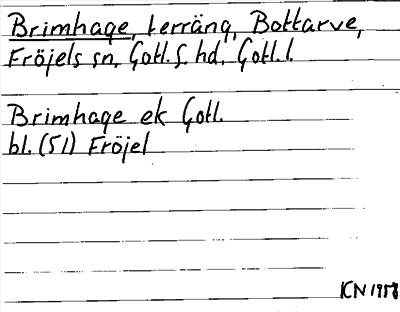 Brimhage, terräng, Bottarve,
Fröjels sn, Gotl. S. hd, Gotl. l.
Brimhage ek Gotl.
bl. (51) Fröjel
ICN 1958